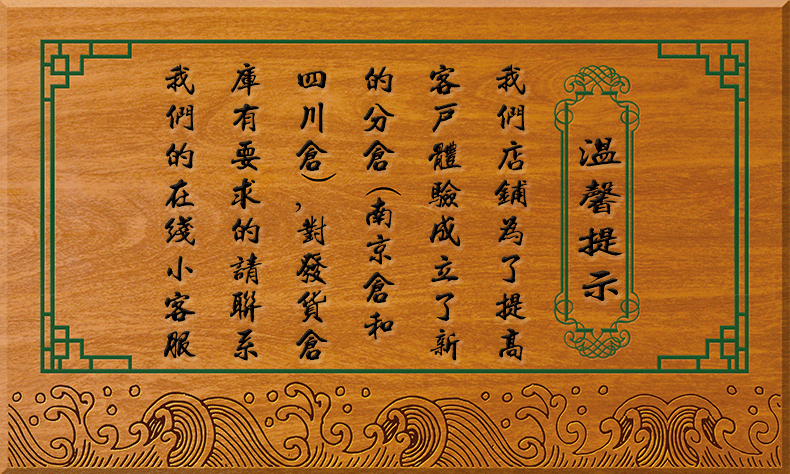 溫馨提示
我們店鋪為了提高
客戶體驗成立了新
的分倉（南京倉和
四川倉），對發貨倉
庫有要求的請聯系
我們的在綫小客服